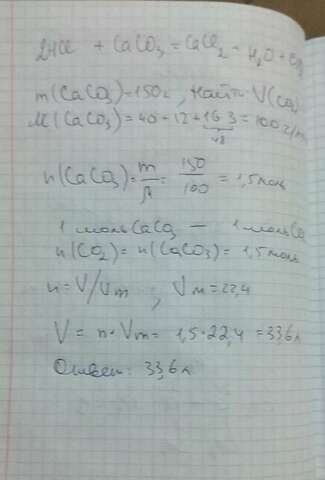 2HCl + CaCO3 = CaCl2 + H2O + CO2
m(CaCO3)=150г, найти V(CO2)
M(CaCO3)=40+12+16·3=100г/м
48
n(CaCO3)=m/M=150/100=1,5моль
1 моль CaCO3 — 1 моль CO
n(CO2)=n(CaCO3)=1,5моль
n=V/Vm ; Vм=22,4
V=n·Vm=1,5·22,4=33,6л
Ответ: 33,6л